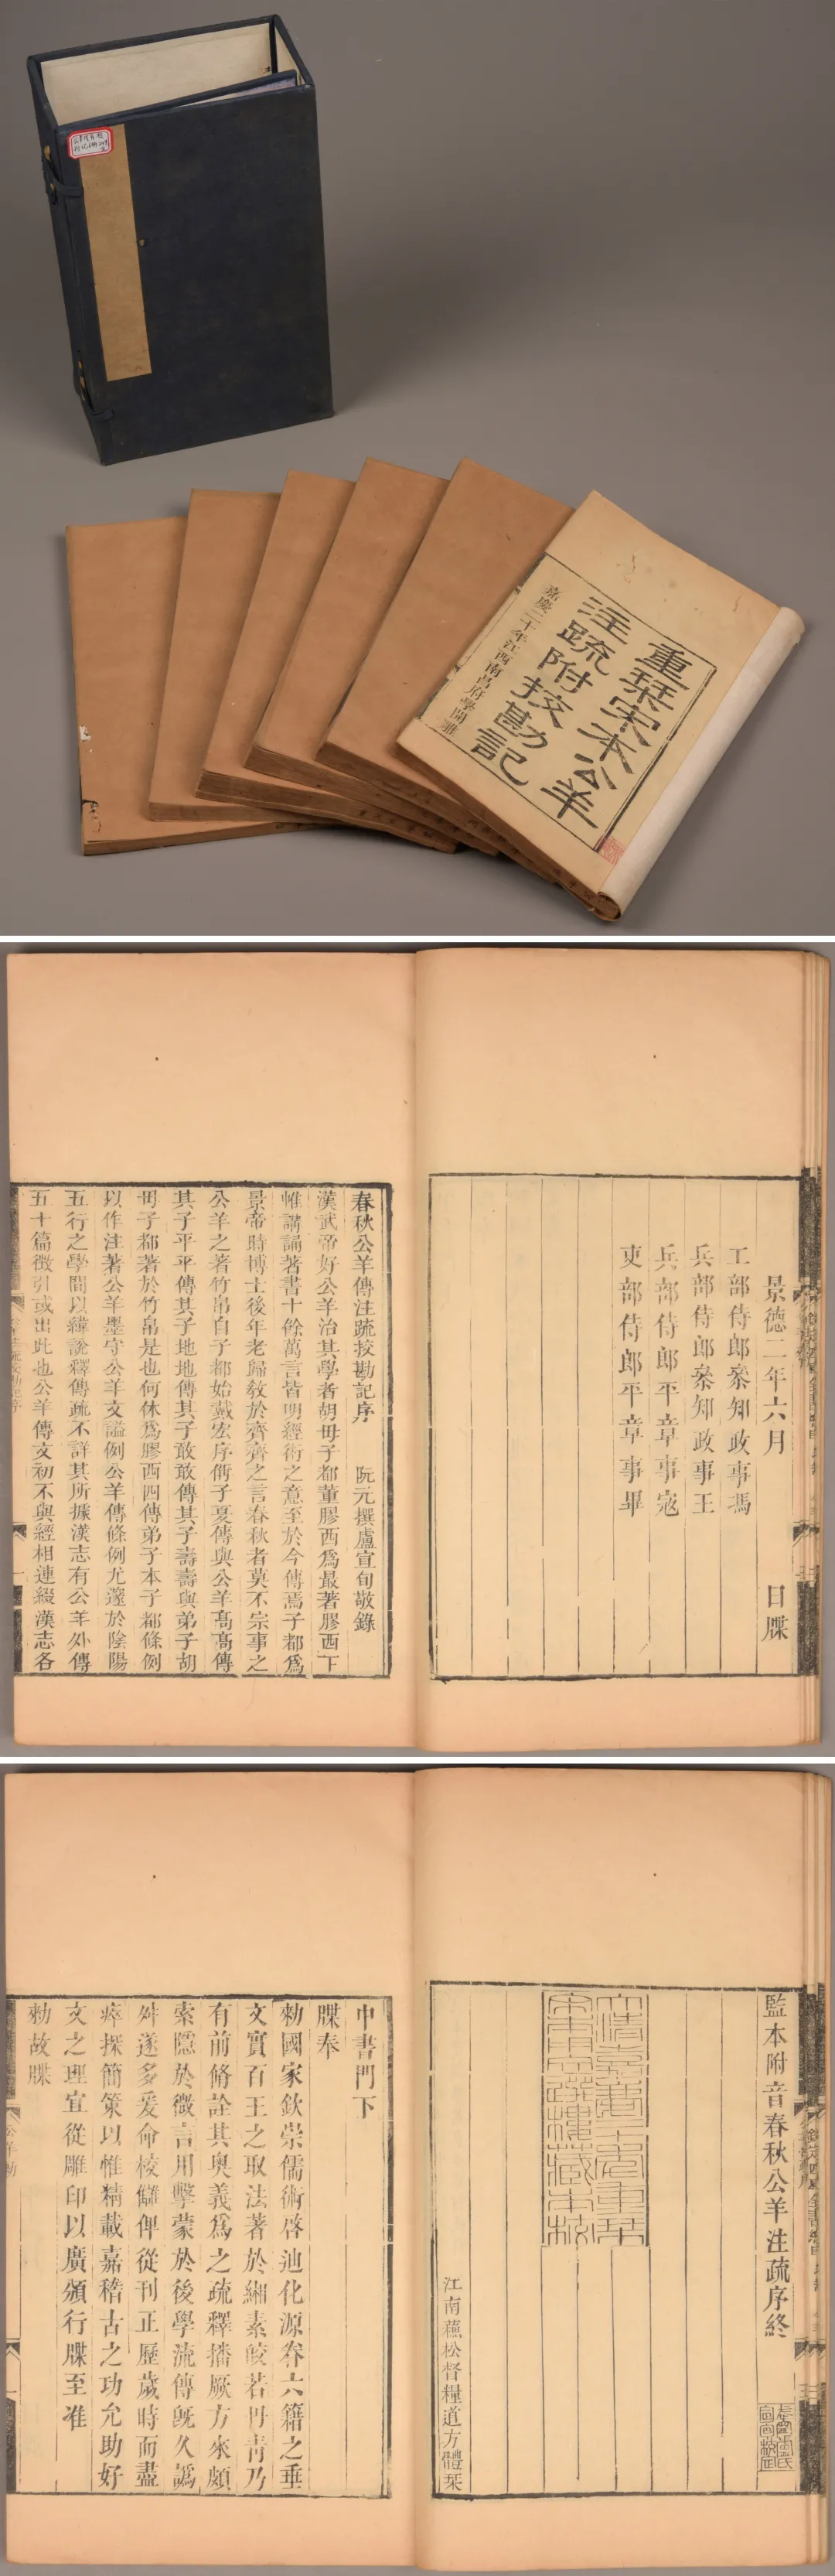 重栞宋本公羊
注疏附挍勘記
嘉慶二十年江西南昌府學開雕
景德二年六月 日牒
工部侍郎叅知政事馮
兵部侍郎叅知政事王
兵部侍郎平章事寇
吏部侍郎平章事畢
春秋公羊傳注疏挍勘記序 阮元撰盧宣旬敬錄
漢武帝好公羊治其學者胡毋子都董膠西爲最著膠西下
帷講誦著書十餘萬言皆明經術之意至於今傳焉子都爲
景帝時博士後年老歸敎於齊齊之言春秋者莫不宗事之
公羊之著竹帛自子都始戴宏序偁子夏傳與公羊高高傳
其子平平傳其子地地傳其子敢敢傳其子壽壽與弟子胡
毋子都著於竹帛是也何休爲膠西四傳弟子本子都條例
以作注著公羊墨守公羊文謚例公羊傳條例尤邃於陰陽
五行之學間以緯說釋傳疏不詳其所據漢志有公羊外傳
五十篇徵引或出此也公羊傳文初不與經相連綴漢志各
監本附音春秋公羊注疏序終
大清嘉慶二十年重栞
宋本文選樓藏本挍
江南蘇松督糧道方體栞
中書門下
牒奉
勑國家欽崇儒術啓迪化源眷六籍之垂
文實百王之取法著於緗素皎若丹靑乃
有前脩詮其奧義爲之疏釋播厥方來頗
索隱於微言用擊蒙於後學流傳旣久譌
舛遂多爰命校讎俾從刊正歷歲時而盡
瘁探簡策以惟精載嘉稽古之功允助好
文之理宜從雕印以廣頒行牒至准
勑故牒